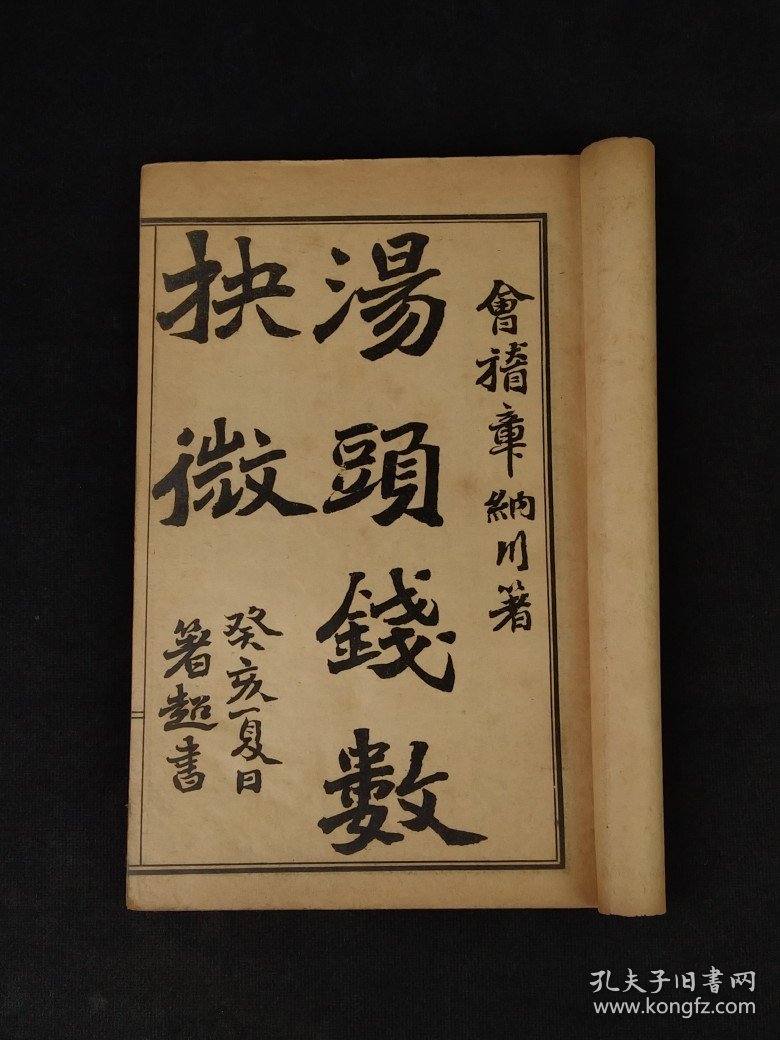 會稽章納川著
湯頭錢數
抉微
癸亥夏日
箸超書
孔夫子旧书网
www.kongfz.com